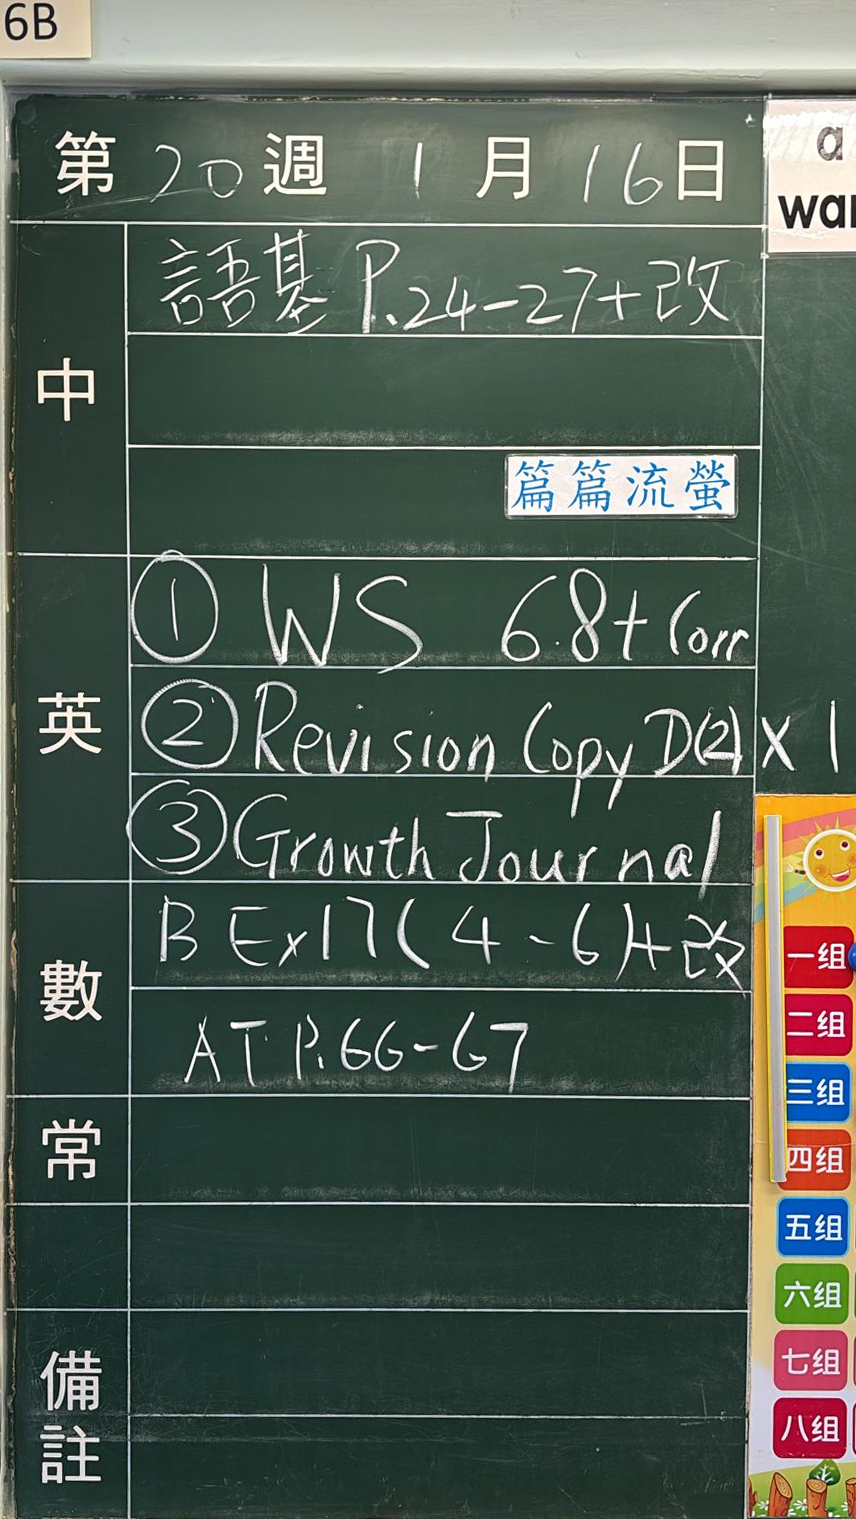 6B
第 20 週 1 月 16 日
中
語基 P.24-27+改
篇篇流螢
英
① WS 6.8+Corr
② Revision Copy D(2) x 1
③ Growth Journal
數
B Ex17(4-6)+改
AT P.66-67
常
備註
a
一组
二组
三组
四组
五组
六组
七组
八组